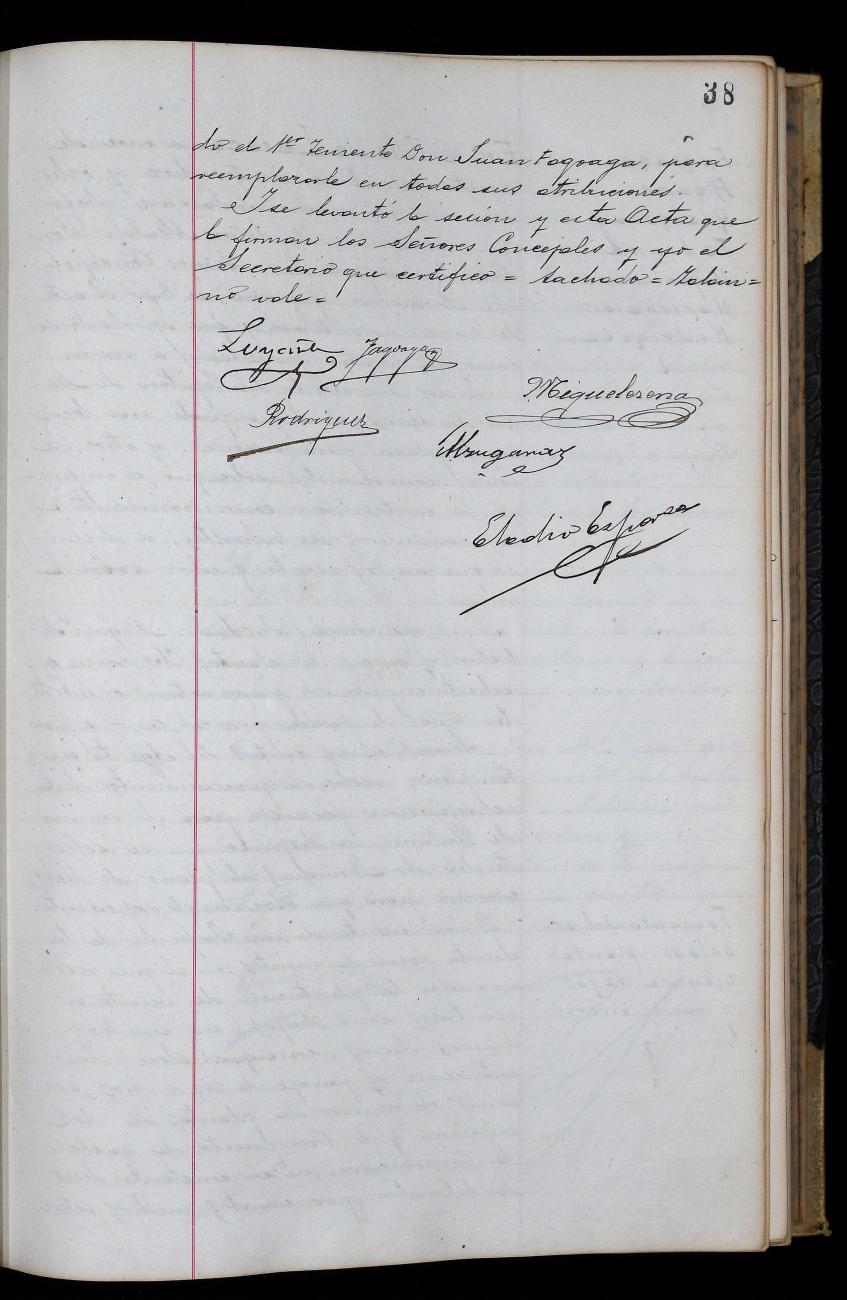 38
do el 1er Teniente Don Juan Fagoaga, para
reemplazarle en todas sus atribuciones.
I se levantó la sesión y esta Acta que
la firman los Señores Concejales y yo el
Secretario que certifico = tachado =
no vale =
Fagoaga
Miguelerena
Rodriguez
Eladio Esparza